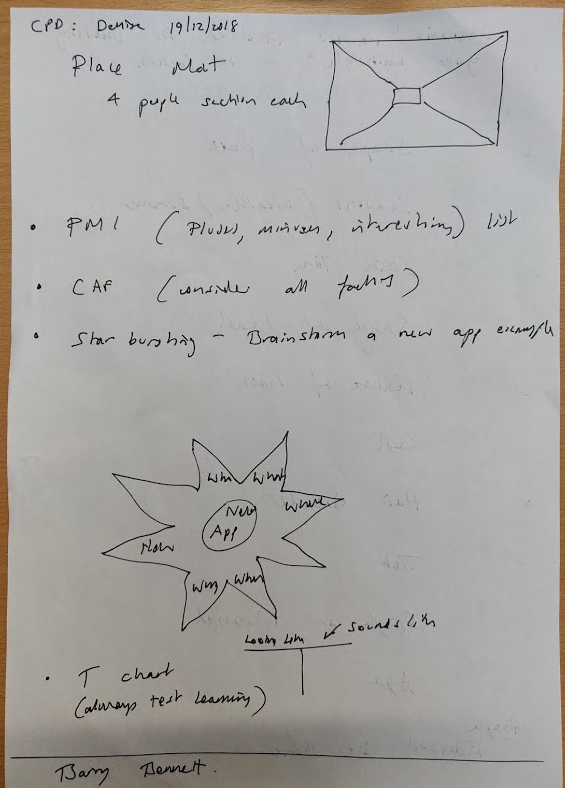 CPD: Denise 19/12/2018
Place Mat
4 people section each
• PMI (Pluses, minuses, interesting) list
• CAF (consider all factors)
• Star bursting - Brainstorm a new app example
Who What
Where
New
App
How
Why When
Looks Like Sounds Like
• T chart
(always test learning)
Barry Bennett.